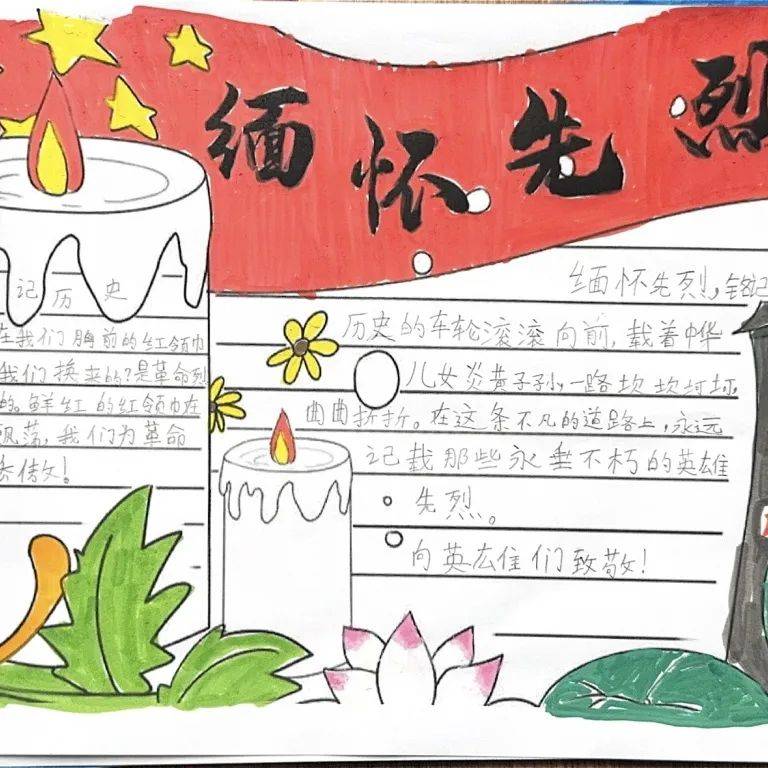 缅怀先烈
记历史
在我们胸前的红领巾
我们换来的?是革命烈
的。鲜红的红领巾在
飘荡,我们为革命
缅怀先烈,铭记
历史的车轮滚滚向前,载着中华
儿女炎黄子孙,一路坎坎坷坷,
曲曲折折。在这条不凡的道路上,永远
记载那些永垂不朽的英雄
先烈。
向英雄们致敬!